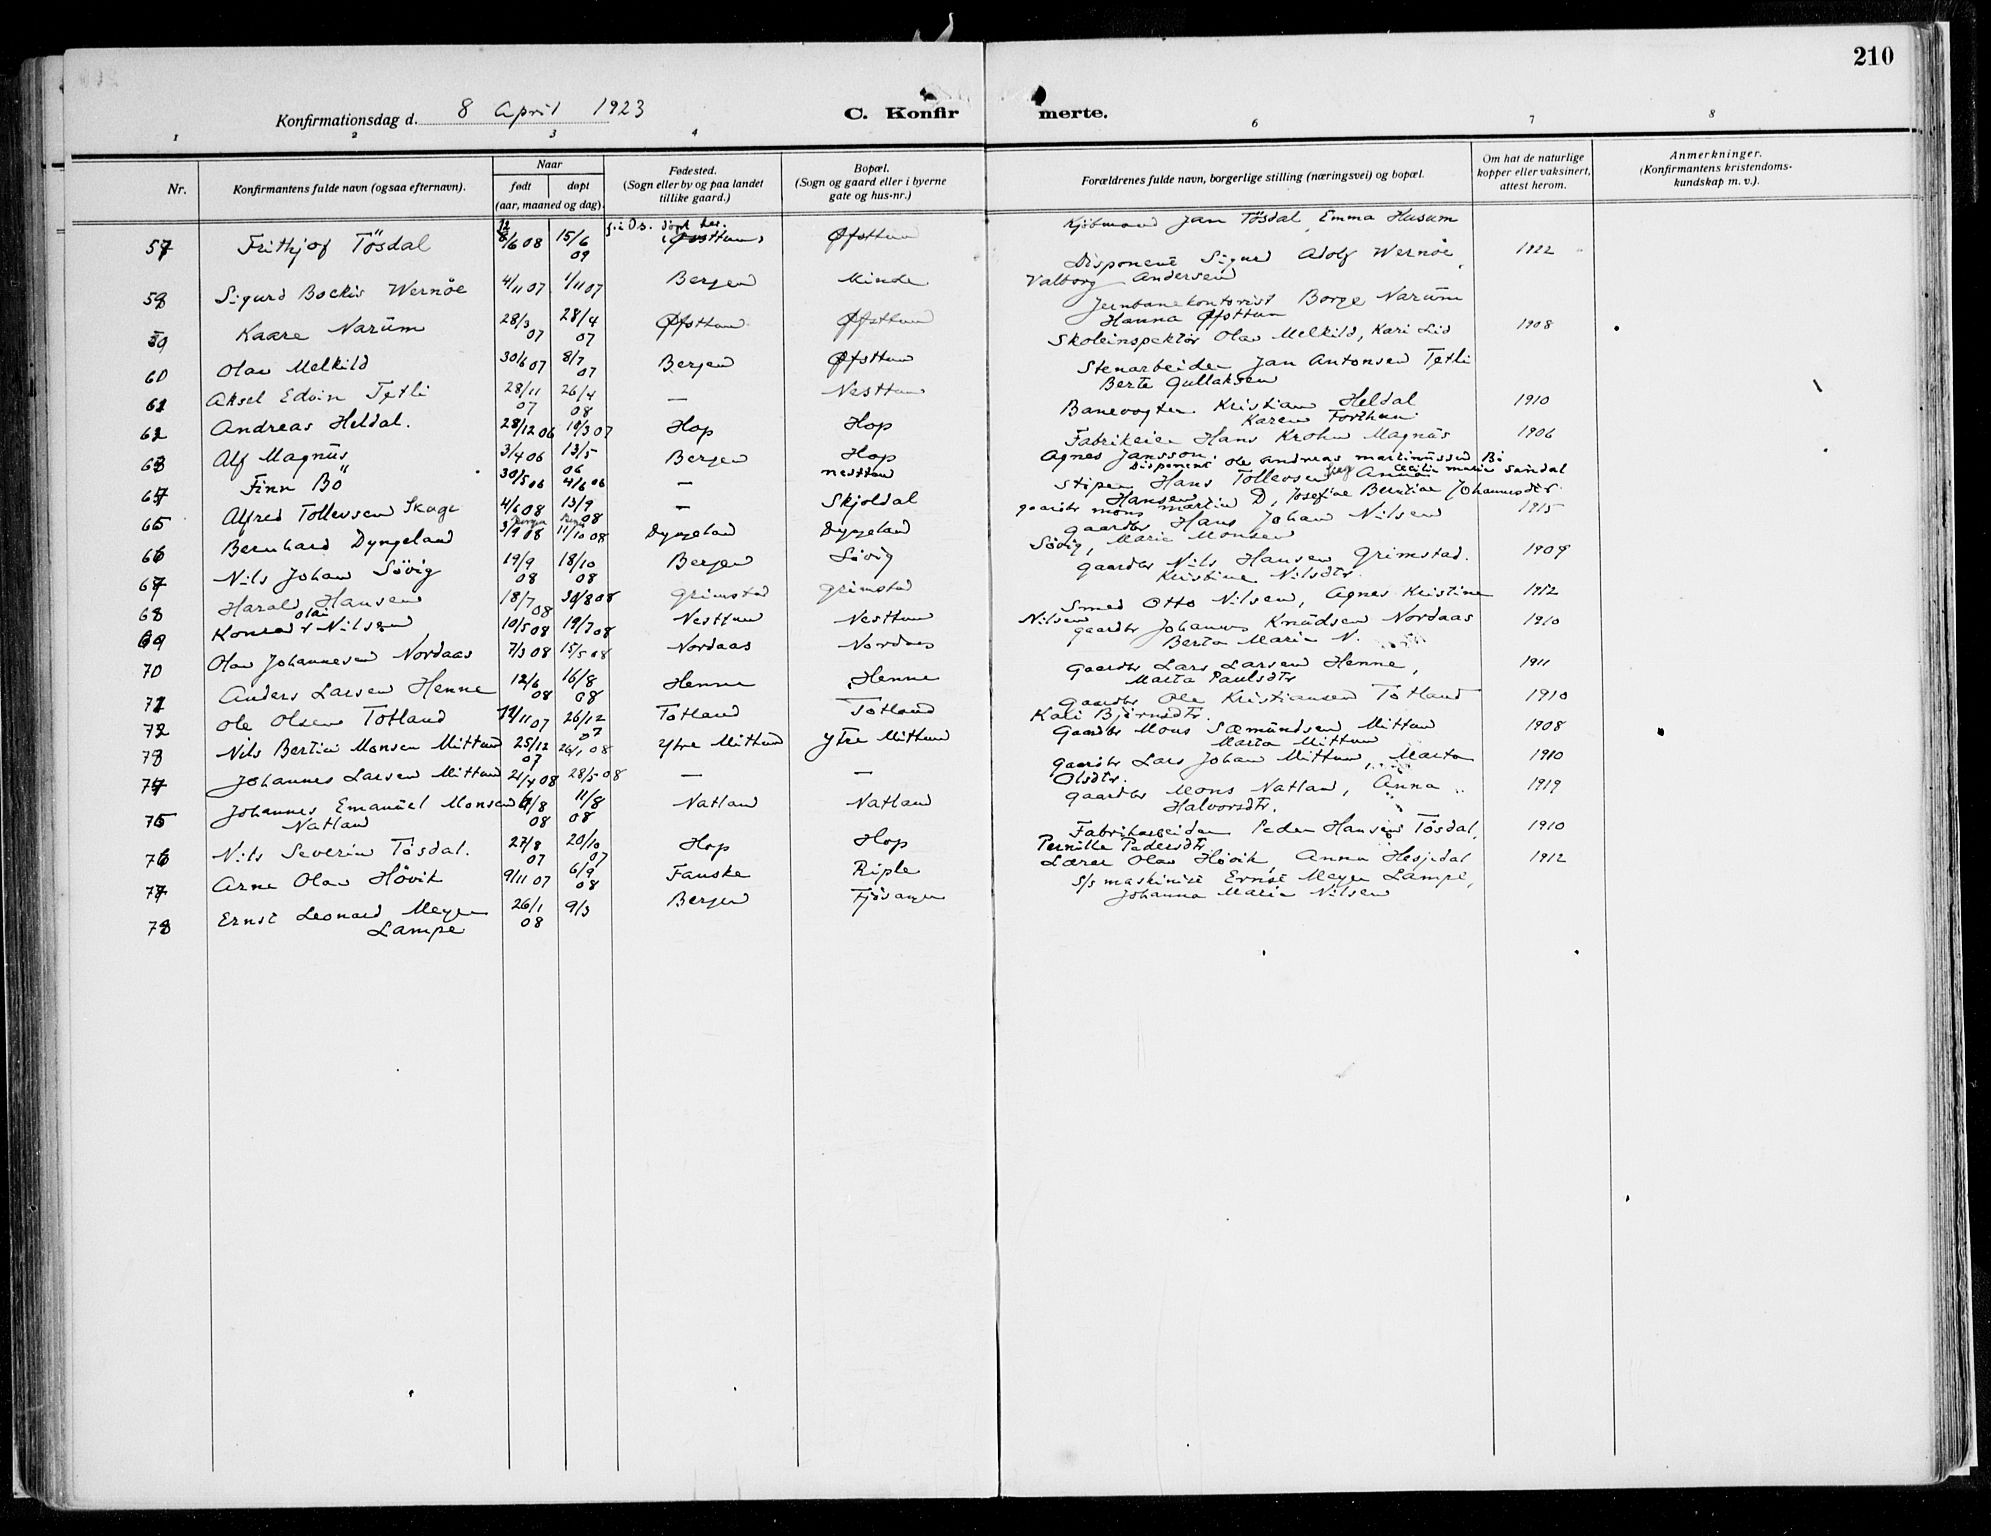 210
Konfirmationsdag d. 8 April 1923
C. Konfirmerte.
1 2 3 4 6 7 8
Nr.
Konfirmantens fulde navn (ogsaa efternavn).
Naar
født døpt
(aar, maaned og dag).
Fødested.
(Sogn eller by og paa landet
tillike gaard.)
Bopæl.
(Sogn og gaard eller i byerne
gate og hus-nr.)
Forældrenes fulde navn, borgerlige stilling (næringsvei) og bopæl.
Om hat de naturlige
kopper eller vaksinert,
attest herom.
Anmerkninger.
(Konfirmantens kristendoms-
kundskap m. v.).
57 Frithjof Tösdal 6/6 08 15/6 09 Øfsttun Øfsttun Kjöbmand Jan Tösdal, Emma Husum
58 Sigurd Bockis Wernöe 4/11 07 1/11 07 Bergen Minde Disponent Sigurd Adolf Wernöe, 1922
Valborg Andersen
59 Kaare Narüm 28/3 07 28/4 07 Øfsttun Øfsttun Jernbanekontorist Borge Narüm
Hanna Øfsttun
60 Olav Melkild 30/6 07 8/7 07 Bergen Øfsttun Skoleinspektör Olav Melkild, Kari Lid 1908
61 Aksel Edvin Tetli 28/11 07 26/4 08 — Nesttun Stenarbeider Jan Antonsen Tetli
Berte Gullaksen
62 Andreas Heldal. 28/12 06 10/3 07 Hop Hop Banevogter Kristian Heldal 1910
Karen Forthun
63 Alf Magnüs 3/4 06 13/5 06 Bergen Hop Fabrikeier Hans Krohn Magnüs 1906
Agnes Jansson.
64 Finn Bö 30/5 06 4/6 06 — Nesttun Disponent Ole Andreas Martinüssen Bö
Cecilie Marie Sandal
65 Alfred Tollevsen Skage 4/6 08 13/9 08 — Skjoldal Stiper Hans Tollevsen Anna
Hansen
66 Bernhard Dyngeland 3/9 08 11/10 08 Dyngeland Dyngeland gaardbr Mons Martin D, Josefine Bertine Johannesdtr. 1915
67 Nils Johan Sövig 19/9 08 18/10 08 Bergen Sövig gaardbr Hans Johan Nilsen
Sövig, Marie Monsen
68 Harald Hansen 18/7 08 30/8 08 Grimstad Grimstad gaardbr Nils Hansen Grimstad. 1909
Kristine Nilsdtr.
69 Konrad Olai Nilsen 10/5 08 19/7 08 Nesttun Nesttun Smed Otto Nilsen, Agnes Kristine 1912
Nilsen
70 Olav Johannesen Nordaas 7/3 08 15/5 08 Nordaas Nordaas gaardbr Johannes Knüdsen Nordaas 1910
Berta Marie N.
71 Anders Larsen Henne 12/6 08 16/8 08 Henne Henne Gaardbr Lars Larsen Henne, 1911
Marta Paulsdtr
72 Ole Olsen Totland 14/11 07 26/12 07 Totland Totland Gaardbr Ole Kristiansen Totland 1910
Kari Björnsdtr.
73 Nils Bertin Monsen Mittun 25/12 07 26/1 08 Ytre Mittun Ytre Mittun Gaardbr Mons Sæmündsen Mittun 1908
Marta Mittun
74 Johannes Larsen Mittun 21/4 08 28/5 08 — — Gaardbr Lars Johan Mittun, Marta 1910
Olsdtr.
75 Johannes Emanüel Monsen 4/8 08 11/8 08 Natland Natland gaardbr Mons Natland, Anna 1919
Natland Halvorsdtr.
76 Nils Severin Tösdal. 27/8 07 20/10 07 Hop Hop Fabrikarbeider Peder Hansen Tösdal, 1910
Pernille Pedersdtr
77 Arne Olav Hövik 9/11 07 6/9 08 Fauske Riple Lærer Olav Hövik, Anna Hesjedal 1912
78 Ernst Leonard Meyer 26/1 08 9/3 Bergen Fjösanger S/s maskinist Ernst Meyer Lampe,
Lampe Johanna Marie Nilsen